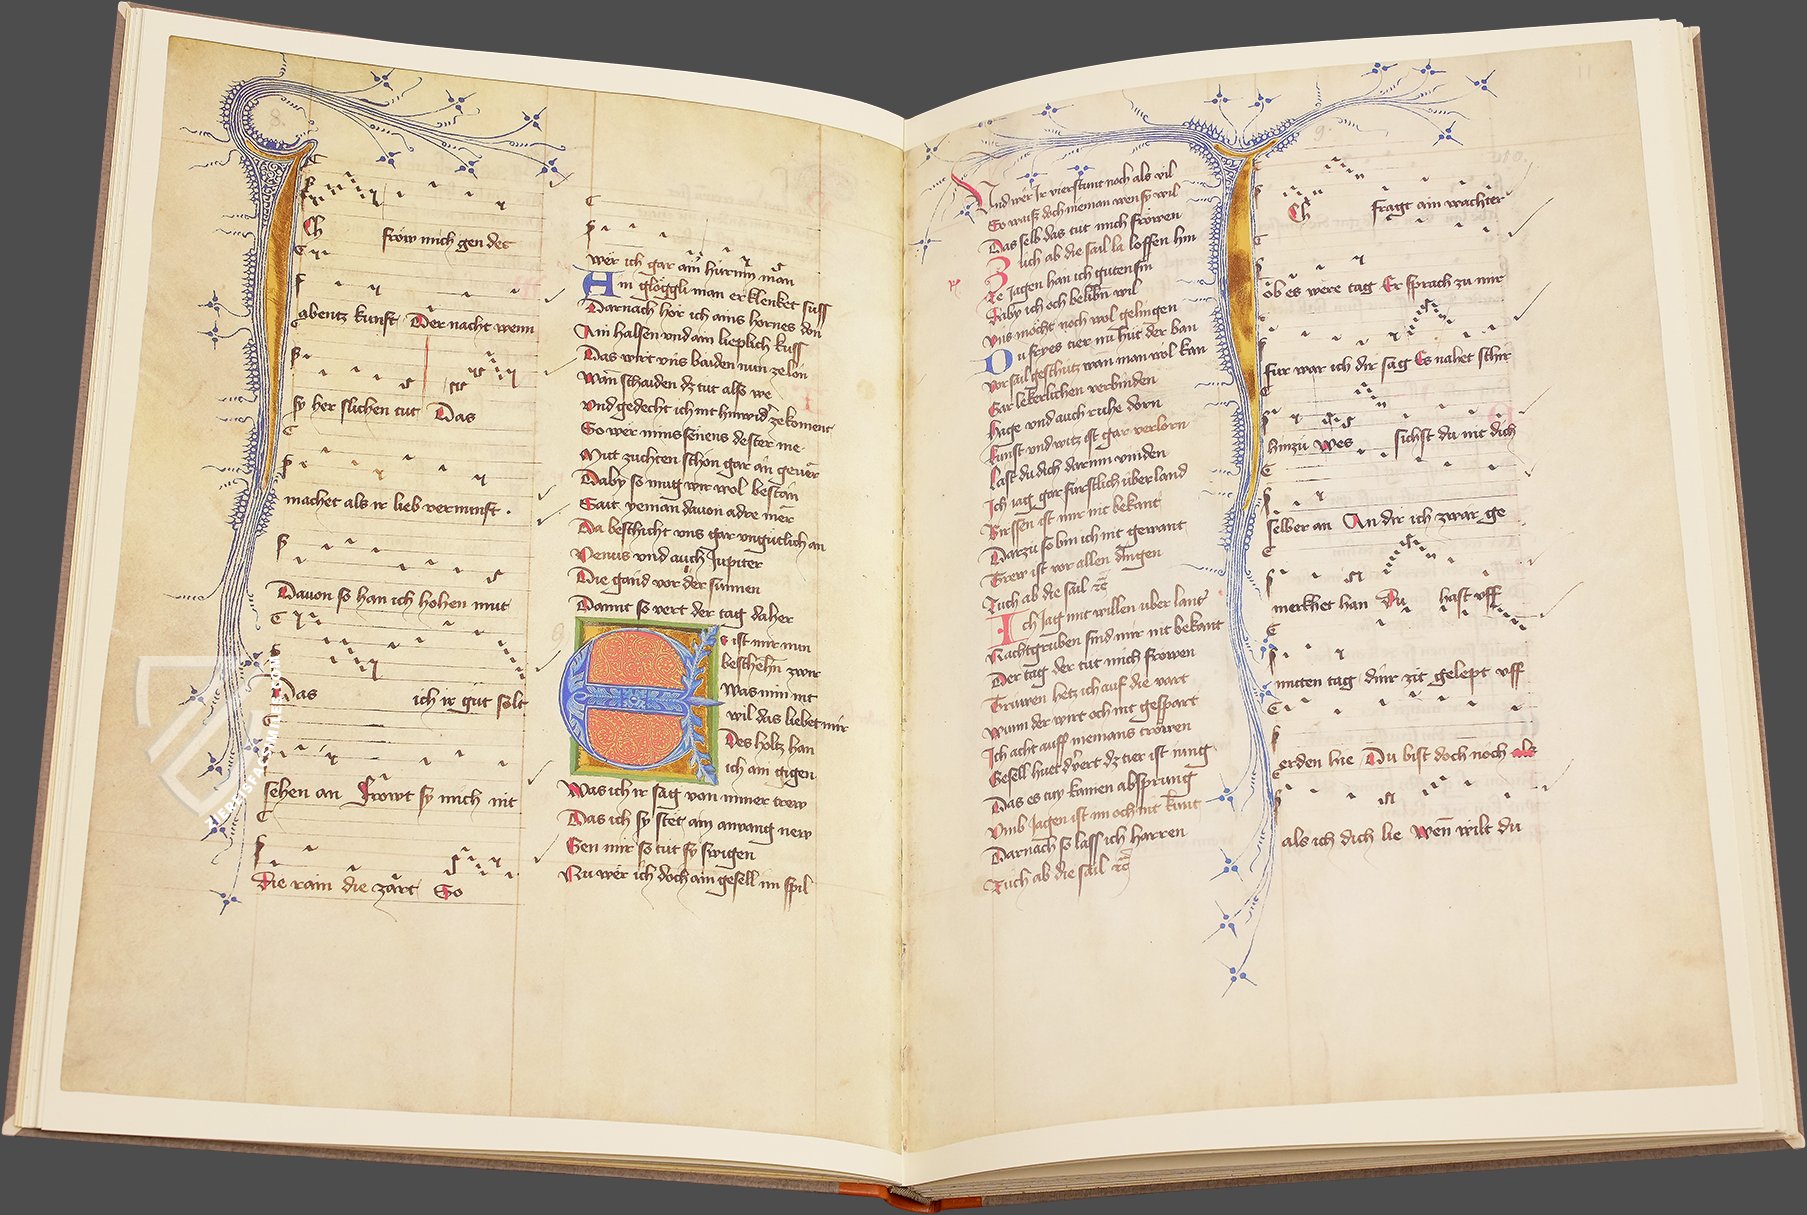 8.
Ch frow mich gen des
abentz kunft Der nacht wenn
sy her slichen tut Das
machet als ir lieb vernunft.
Davon so han ich hohen mut
Das ich ir gut solt
sehen an Frowt sy mich nit
Die rain die zart So
wer ich gar ain hurnin man
Ain gloggli man erklenket suss
Darnach hor ich ains hornes don
Ain halsen und ain lieplich kuss
Das wirt uns baiden nun ze lon
Wan schaiden dz tut also we
und gedecht ich nit hinwider ze koment
So wer mins senens dester me
Mit zuchten schon gar an gever
Daby so mug wir wol bestan
Sait yeman davon adre mer
Da beschicht uns gar ungutlich an
Venus und auch Jupiter
Die gand vor der sunnen
Damit so vert der tag daher
9
Es ist mir nun
beschehn zwir
Was min nit
wil das liebet mir
Des holtz han
ich ain gigen
Was ich ir sag von miner trew
Das ich sy stet ain anvang new
Gen mir so tut sy swigen
Nu wer ich doch ain gesell im spil
11
Und wer Ir vierstunt noch als vil
So waiss doch nieman wen sy wil
Das selb das tut mich frowen
Zuch ab die sail la loffen hin
Ze Jagen han ich guten sin
Daby ich och beliben wil
uns mocht noch wol gelingen
Du seyes tier nu hut der ban
vor sail geschutz wan man wol kan
Gar lekerlichen verbinden
Hage und auch ruhe dorn
kunst und witz ist gar verlorn
Last du dich darinn vinden
Ich jag gar furstlich uber land
Birssen ist mir nit bekant
Darzu so bin ich nit gewant
Trew ist vor allen dingen
Zuch ab die sail etc
Ich Jag mit willen uber lant
Nachtgruben sind mir nit bekant
Der tag der tut mich frowen
Truwen hetz ich auf die vart
wann der wirt och nit gespart
Ich acht auff niemans trowen
Gesell huet dvert dz tier ist jung
Das es tuy kainen absprung
Umb Jagen ist im och nit kunt
Darnach so lass ich harren
Zuch ab die sail etc
9.
Ch fragt ain wachter
ob es were tag Er sprach zu mir
fur war ich dir sag Es nahet schir
hinzu Wes sichst du nit dich
selber an An dir ich zwar ge
merkhet han Du hast uff
mitten tag diner zit gelept uff
erden hie Du bist doch noch als
als ich dich lie Wen wilt du
ZIEREIS FACSIMILES.COM